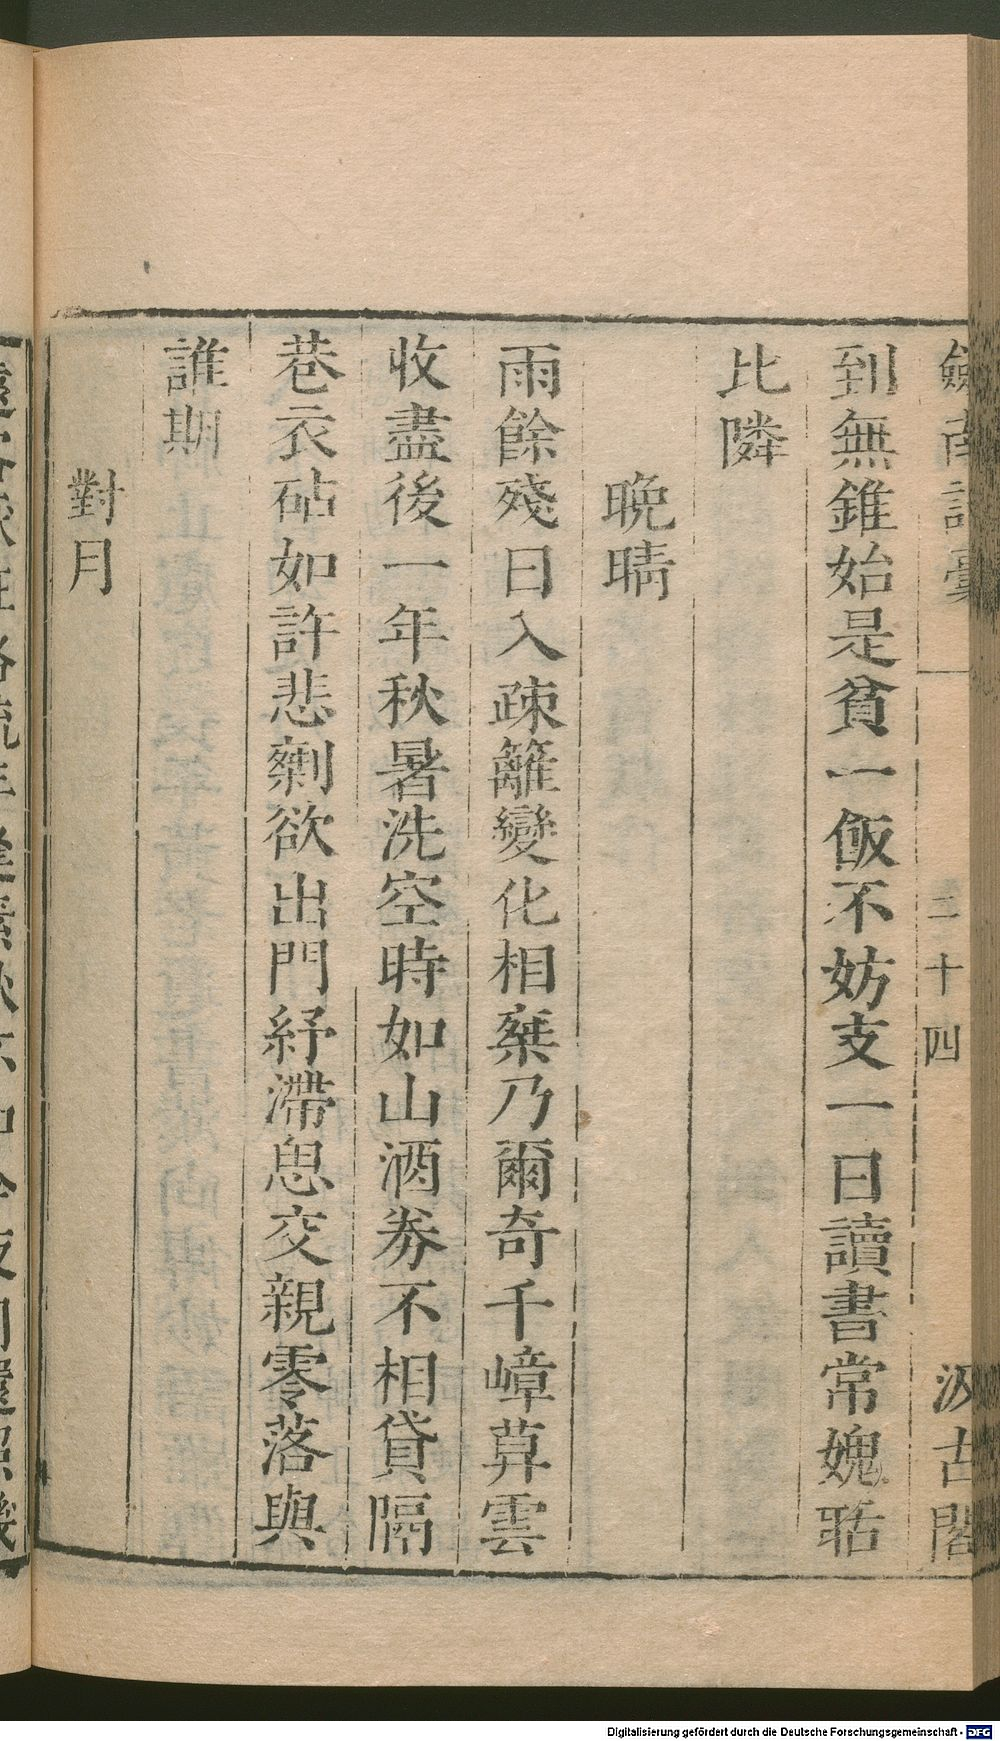 劔南詩稾
二十四
汲古閣
到無錐始是貧一飯不妨支一日讀書常媿聒
比隣
晩晴
雨餘殘日入疎籬變化相乗乃爾奇千嶂莫雲
收盡後一年秋暑洗空時如山酒券不相貸隔
巷衣砧如許悲剩欲出門紓滯思交親零落與
誰期
對月
Digitalisierung gefördert durch die Deutsche Forschungsgemeinschaft - DFG